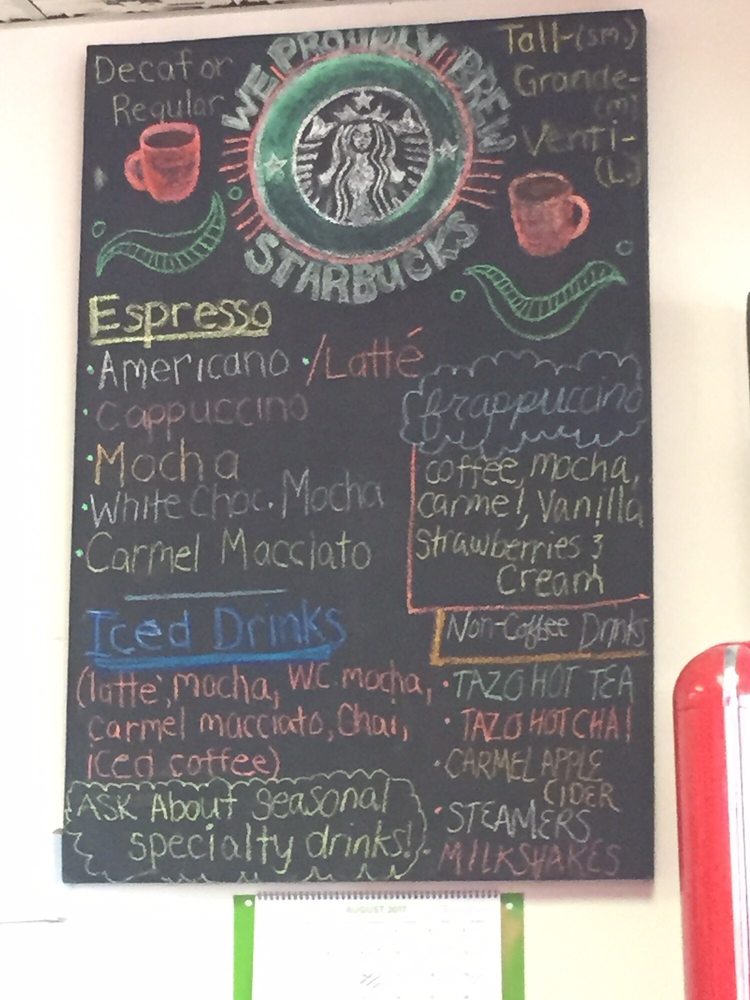 Decaf or
Regular
WE PROUDLY BREW
STARBUCKS
Tall-(sm.)
Grande-
(m)
Venti-
(L)
Espresso
•Americano •/Latté
•Cappuccino
•Mocha
•White Choc. Mocha
•Carmel Macciato
frappuccino
coffee, mocha,
carmel, Vanilla
Strawberries &
Cream
Iced Drinks
(latte, mocha, W.C. mocha,
carmel macciato, Chai,
iced coffee)
ASK About seasonal
specialty drinks!
Non-Coffee Drinks
•TAZO HOT TEA
•TAZO HOT CHAI
•CARMEL APPLE
CIDER
•STEAMERS
•MILKSHAKES
AUGUST 2017